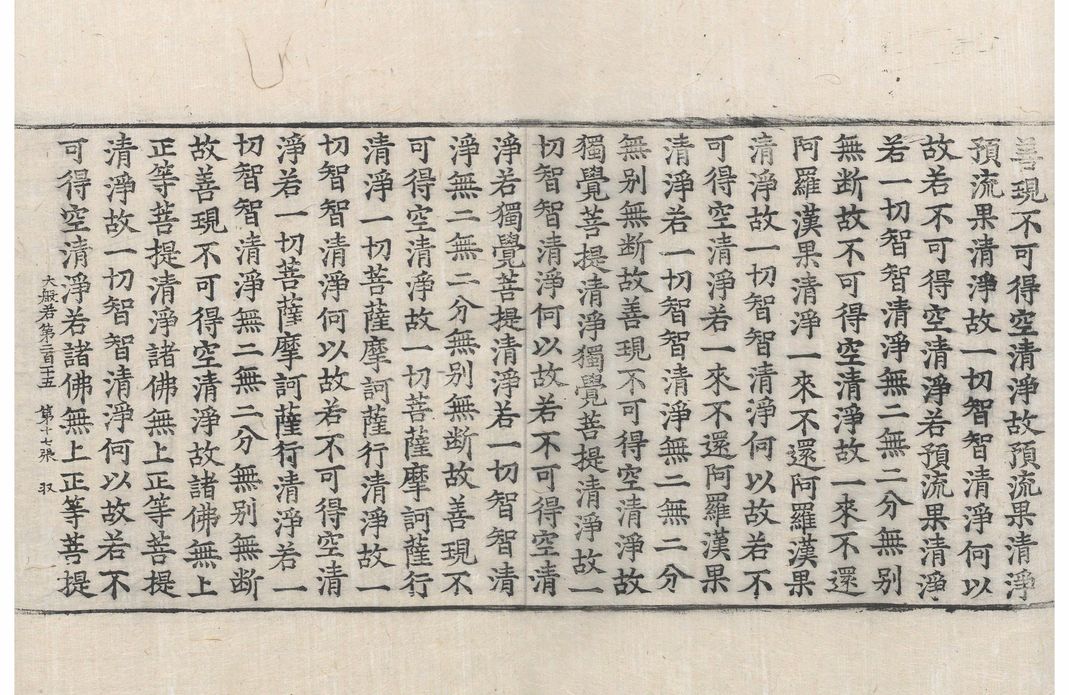 善現不可得空清淨故預流果清淨
預流果清淨故一切智智清淨何以
故若不可得空清淨若預流果清淨
若一切智智清淨無二無二分無別
無断故不可得空清淨故一來不還
阿羅漢果清淨一來不還阿羅漢果
清淨故一切智智清淨何以故若不
可得空清淨若一來不還阿羅漢果
清淨若一切智智清淨無二無二分
無別無断故善現不可得空清淨故
獨覺菩提清淨獨覺菩提清淨故一
切智智清淨何以故若不可得空清
淨若獨覺菩提清淨若一切智智清
淨無二無二分無別無断故善現不
可得空清淨故一切菩薩摩訶薩行
清淨一切菩薩摩訶薩行清淨故一
切智智清淨何以故若不可得空清
淨若一切菩薩摩訶薩行清淨若一
切智智清淨無二無二分無別無断
故善現不可得空清淨故諸佛無上
正等菩提清淨諸佛無上正等菩提
清淨故一切智智清淨何以故若不
可得空清淨若諸佛無上正等菩提
大般若第二百二十五 第十七張 収